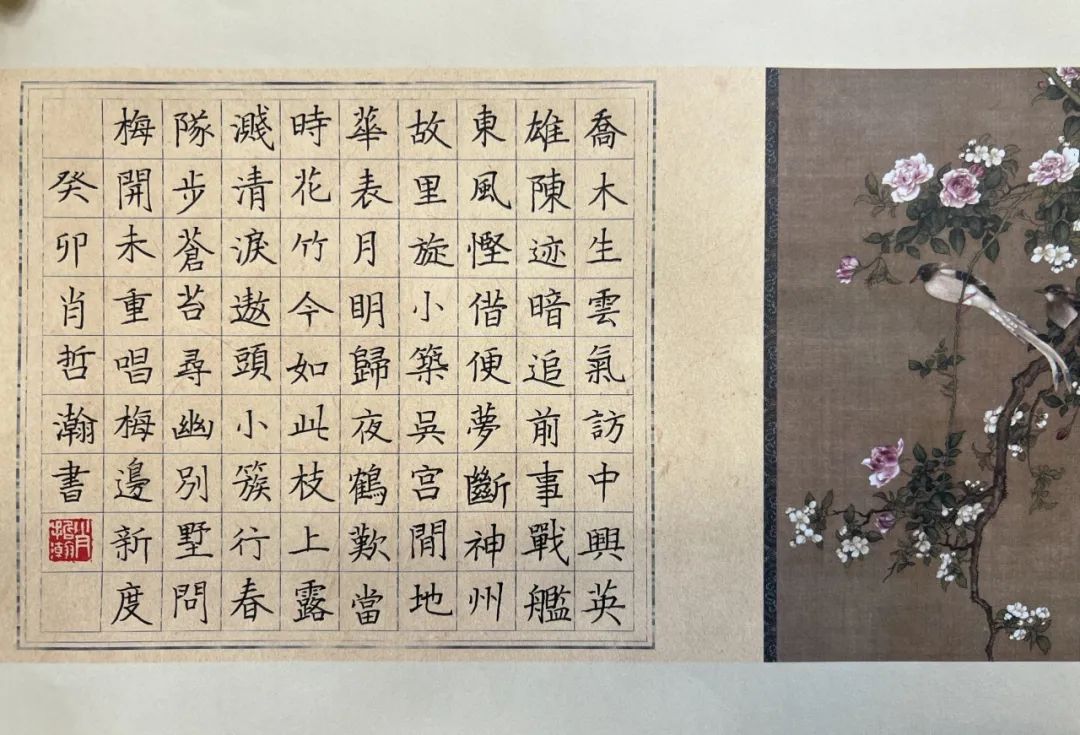 喬木生雲氣訪中興英
雄陳迹暗追前事戰艦
東風慳借便夢斷神州
故里旋小築吳宮閒地
華表月明歸夜鶴歎當
時花竹今如此枝上露
濺清淚遨頭小簇行春
隊步蒼苔尋幽別墅問
梅開未重唱梅邊新度
癸卯肖哲瀚書
肖哲瀚